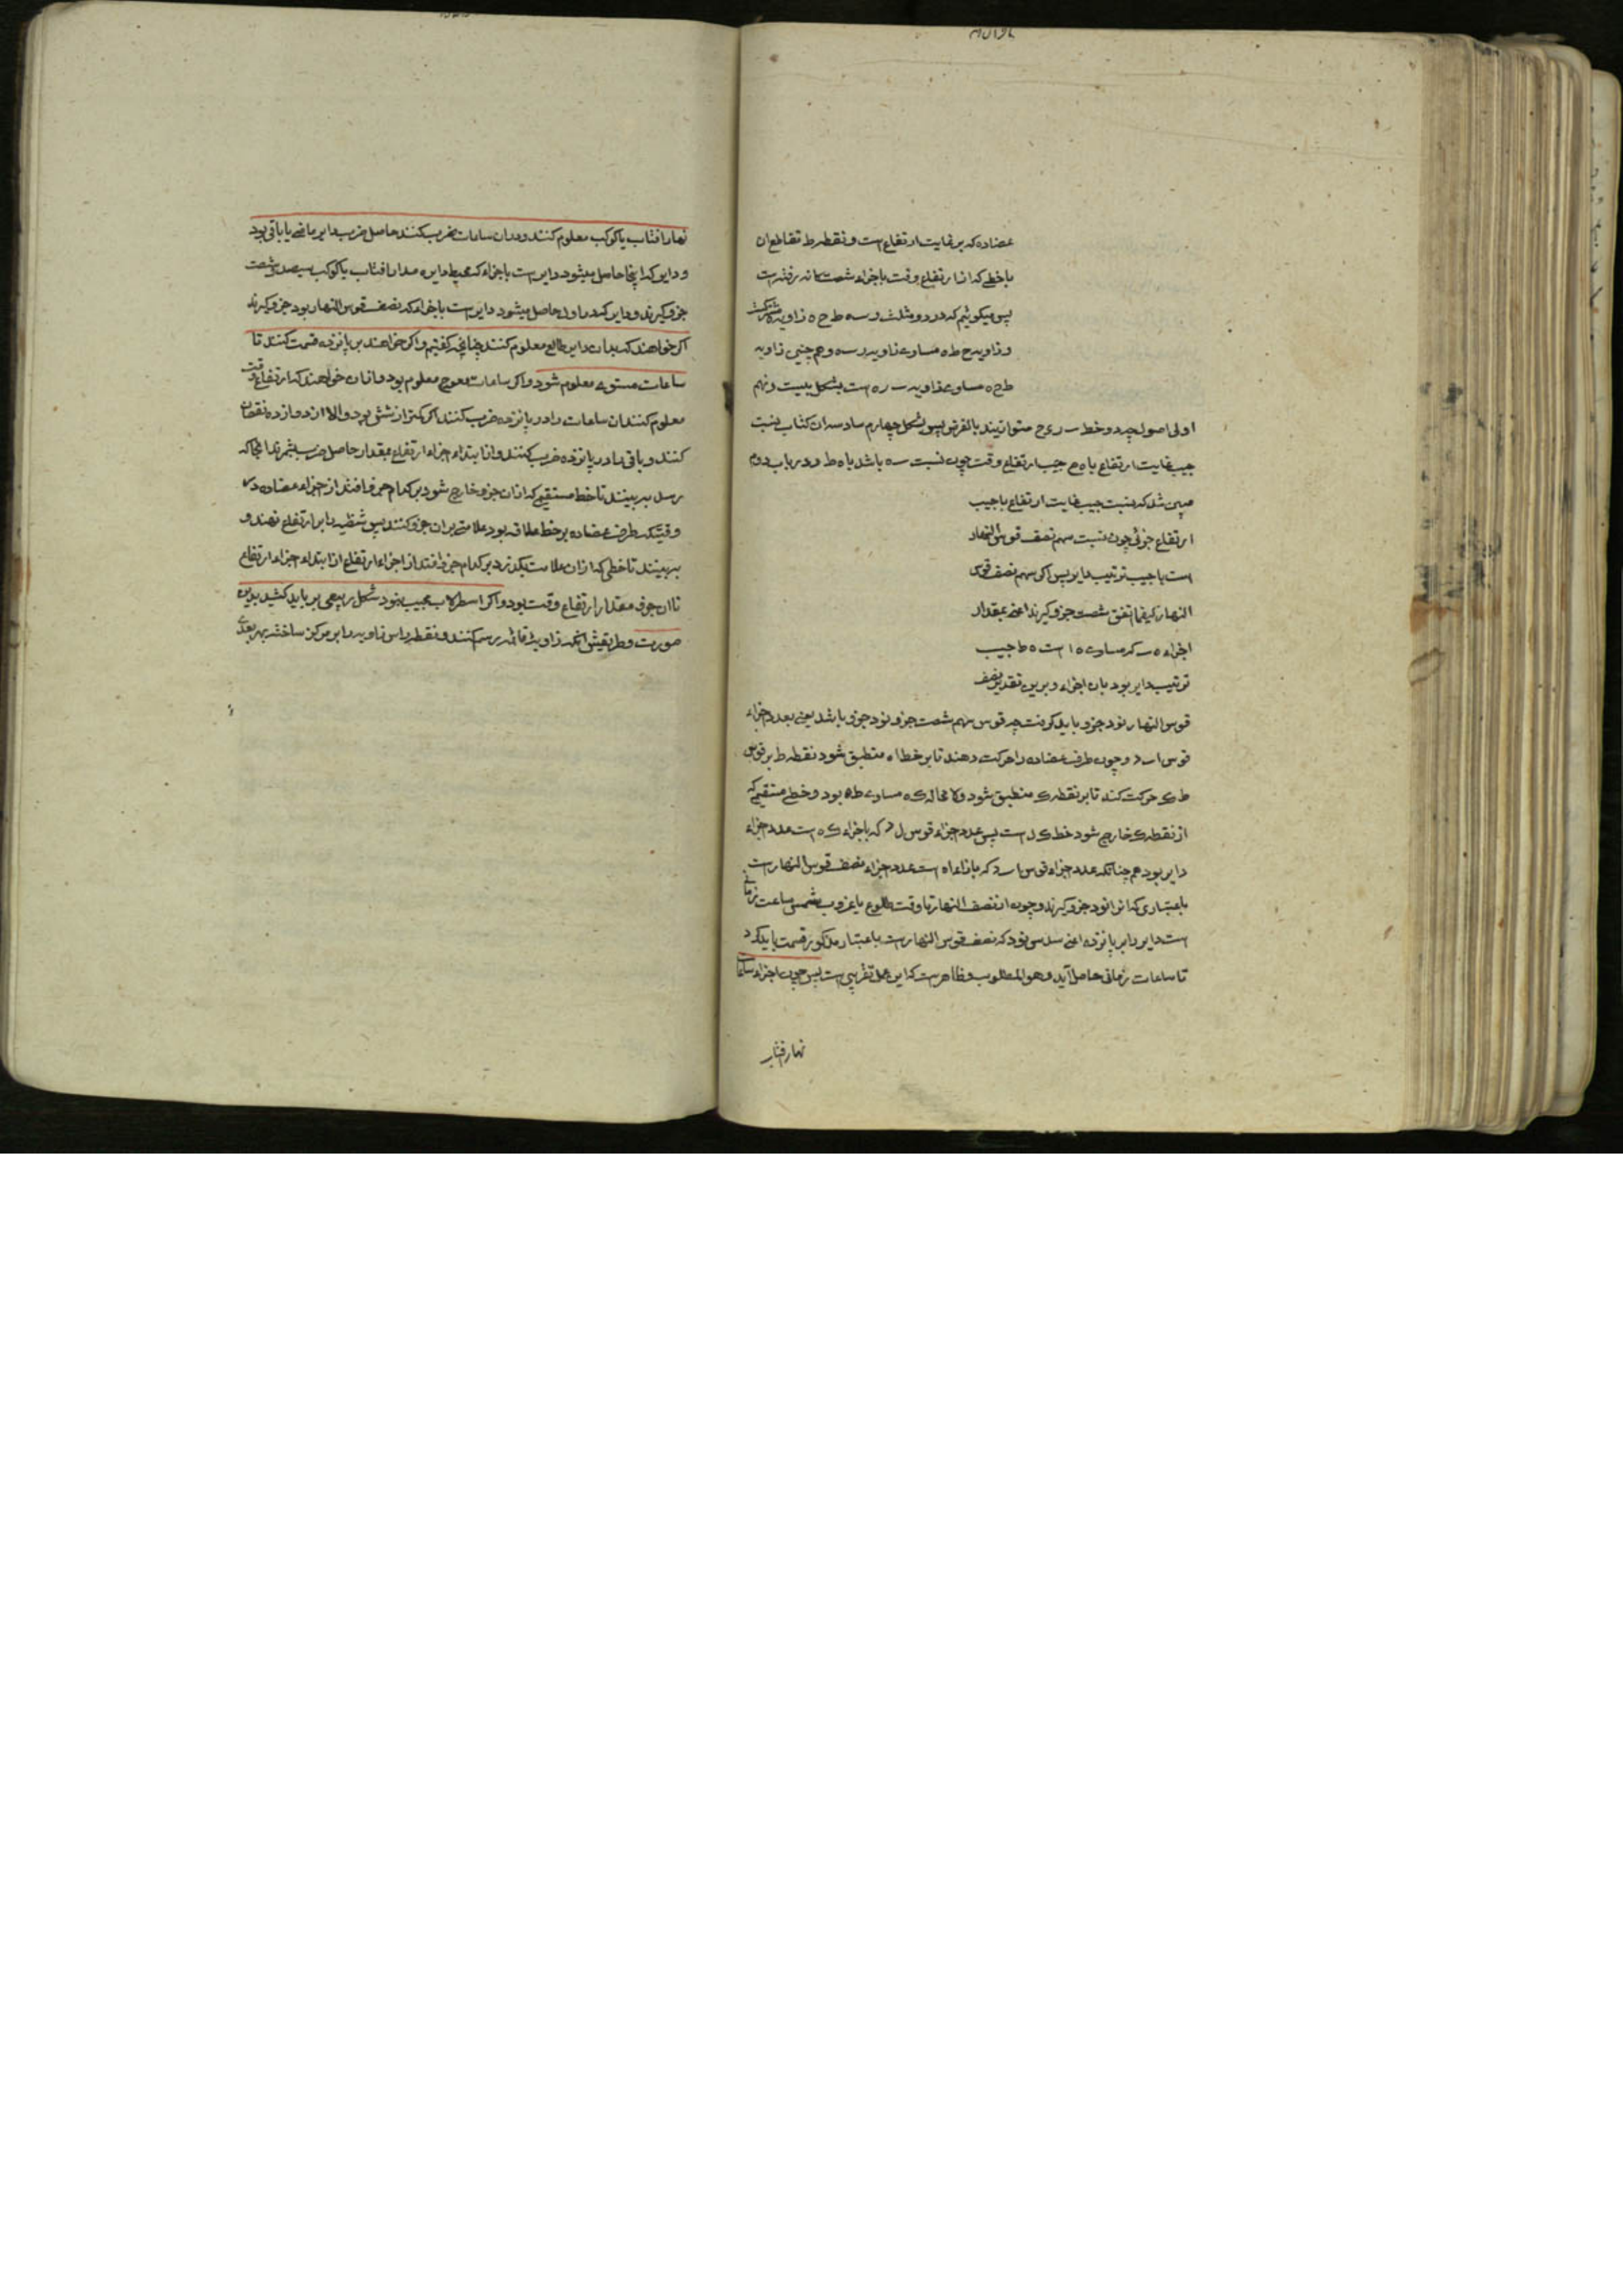 عضاده که بر غایت ارتفاع است و نقطه ط تقاطع ان
با خطی که از ارتفاع وقت باجزاء شصت کانه رفته است
پس میکوئیم که در دو مثلث ر سه ط ح ه زاویه ه مشترکست
و زاویه ح ط ه مساوی زاویه ر سه و هم چنین زاویه
ط ح ه مساوی زاویه سه ر ه است بشکل بیست و نهم
اولی اصول چه دو خط سه ر ی ح متوازیند بالفرض پس بشکل چهارم سادسه ان کتاب نسبت
جیب غایت ارتفاع با ه ح جیب ارتفاع وقت چون نسبت سه ه باشد با ه ط و در باب دوم
مبین شد که نسبت جیب غایت ارتفاع با جیب
ارتفاع جزئی چون نسبت سهم نصف قوس النهار
است با جیب ترتیب دایر پس اکر سهم نصف قوس
النهار کیفما اتفق شصت جزو کیرند اعنی بمقدار
اجزاء ه سه که مساوی ه ا است ه ط جیب
ترتیب دایر بود بان اجزاء و برین تقدیر نصف
قوس النهار نود جزو باید کرفت چه قوس سهم شصت جزو نود جزو باشد یعنی بعدد اجزاء
قوس ا سه د و چون طرف عضاده را حرکت دهند تا بر خط ا ه منطبق شود نقطه ط بر قوس
ط ک حرکت کند تا بر نقطه ک منطبق شود و لا محاله ک ه مساوی ط ه بود و خطی مستقیم که
از نقطه ک خارج شود خط ک ل است پس عدد اجزاء قوس ل د که باجزاء ک ه است عدد اجزاء
دایر بود هم چنانکه عدد اجزاء قوس ا سه د که بازاء ا ه است عدد اجزاء نصف قوس النهار است
باعتباری که انرا نود جزو کیرند و چون از نصف النهار تا وقت طلوع یا غروب شمس ساعت زمانی
است دایر را بر پانزده اعنی سدس نود که نصف قوس النهار است باعتبار مذکور قسمت باید کرد
تا ساعات زمانی حاصل آید و هو المطلوب و ظاهر است که این عمل تقریبی است پس چون اجزاء ساعات
نهار افتاب
نهار افتاب یا کوکب معلوم کنند و در ان ساعات ضرب کنند حاصل ضرب دایر ماضی یا باقی بود
و دایر که اینجا حاصل میشود دایر است باجزاء که محیط دایره مدار افتاب یا کوکب سیصد و شصت
جزو کیرند و دایر که در اول حاصل میشود دایر است باجزاء که نصف قوس النهار نود جزو کیرند
اکر خواهند که بدان دایر طالع معلوم کنند چنانچه کفتیم و اکر خواهند بر پانزده قسمت کنند تا
ساعات مستوی معلوم شود و اکر ساعات معوج معلوم بود و ازان خواهند که ارتفاع وقت
معلوم کنند ان ساعات را در پانزده ضرب کنند اکر کمتر از شش بود و الا از دوازده نقصان
کنند و باقی را در پانزده ضرب کنند و از ابتداء اجزاء ارتفاع بمقدار حاصل ضرب بشمرند انجا که
رسد به بینند تا خط مستقیم که ازان جزو خارج شود بر کدام جزو افتد از اجزاء عضاده در
وقتیکه طرف عضاده بر خط علاقه بود علامتی بران جزو کنند پس شظیه را بر ارتفاع نهند و
به بینند تا خطی که ازان علامت بکذرد بر کدام جزو افتد از اجزاء ارتفاع از ابتداء اجزاء ارتفاع
تا ان جزو مقدار ارتفاع وقت بود و اکر اسطرلاب مجیب نبود شکل ربعی بر باید کشید بدین
صورت و طریقش انکه زاویه قائمه رسم کنند و نقطه راس زاویه را بر مرکز ساخته بهر بعدی